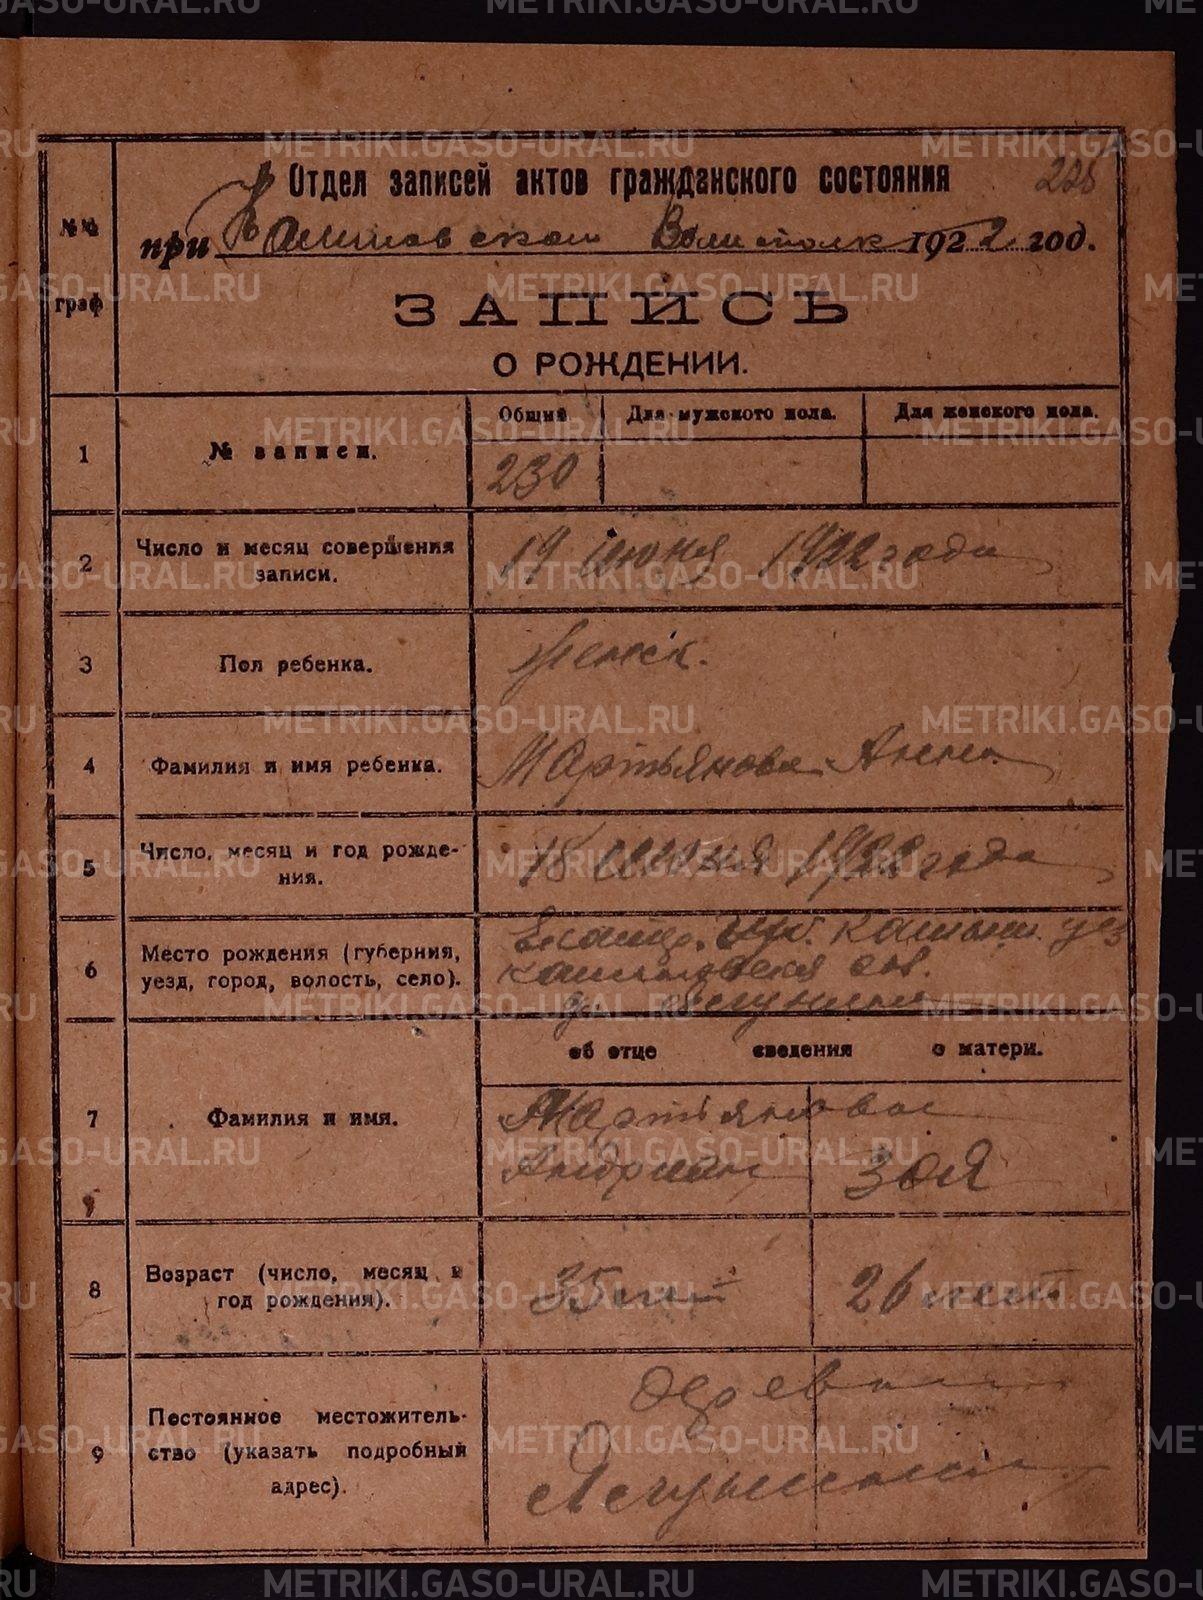 Отдел записей актов гражданского состояния
226
№№ граф
при Камышевском Волисполк 1922 год.
ЗАПИСЬ
О РОЖДЕНИИ.
1
№ записи.
Общий
Для мужского пола.
Для женского пола.
230
2
Число и месяц совершения
записи.
19 июня 1922 года
3
Пол ребенка.
женск.
4
Фамилия и имя ребенка.
Мартьянова Анна
5
Число, месяц и год рожде-
ния.
18 июня 1922 года
6
Место рождения (губерния,
уезд, город, волость, село).
Екатер. Губ. Камышл. уез
вол.
д.
об отце сведения о матери.
7
Фамилия и имя.
Мартьяновы
Андриан Зоя
8
Возраст (число, месяц и
год рождения).
35 лет 26 лет
9
Постоянное местожитель-
ство (указать подробный
адрес).
METRIKI.GASO-URAL.RU